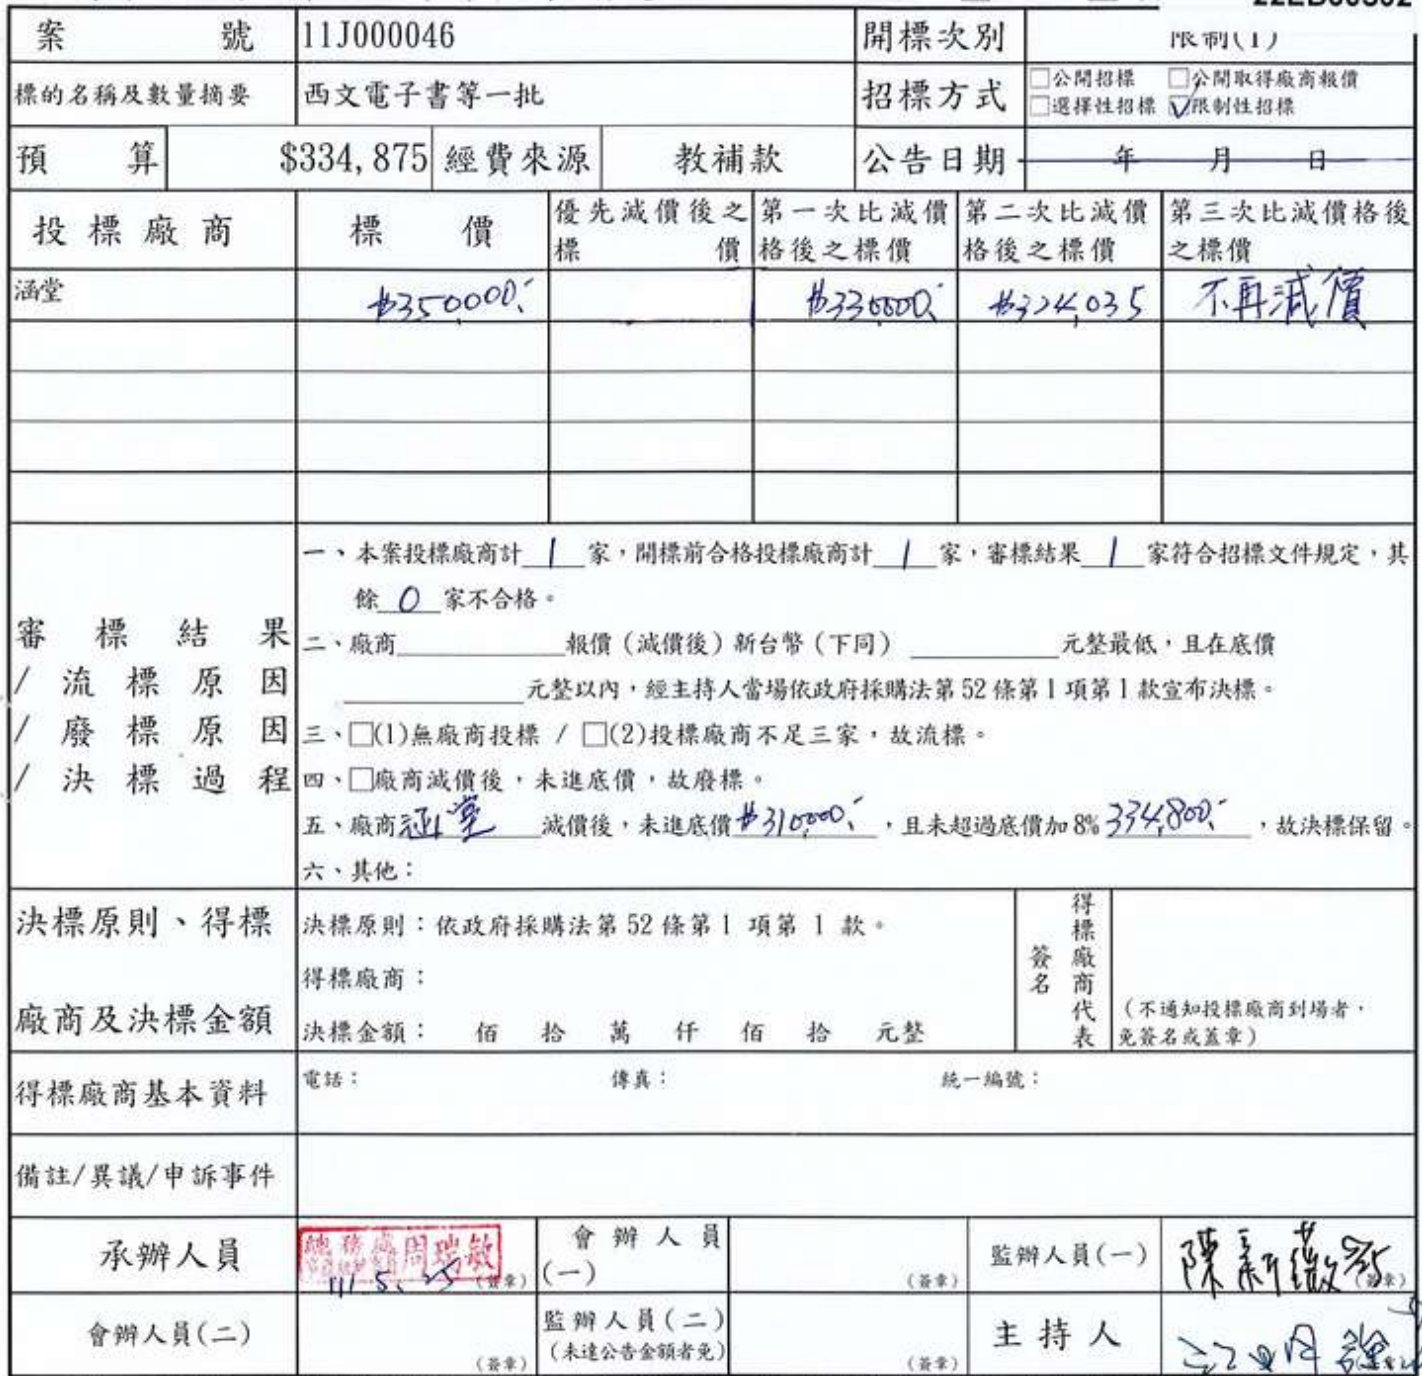 案號 11J000046 開標次別 限制(1)
標的名稱及數量摘要 西文電子書等一批 招標方式 □公開招標 □公開取得廠商報價
□選擇性招標 ☑限制性招標
預算 $334,875 經費來源 教補款 公告日期 年 月 日
投標廠商 標價 優先減價後之標價 第一次比減價格後之標價 第二次比減價格後之標價 第三次比減價格後之標價
涵堂 $350,000.- $330,000.- $324,035 不再減價
一、本案投標廠商計 1 家，開標前合格投標廠商計 1 家，審標結果 1 家符合招標文件規定，其
餘 0 家不合格。
審標結果
/流標原因
/廢標原因
/決標過程
二、廠商 報價（減價後）新台幣（下同） 元整最低，且在底價
元整以內，經主持人當場依政府採購法第52條第1項第1款宣布決標。
三、□(1)無廠商投標 / □(2)投標廠商不足三家，故流標。
四、□廠商減價後，未進底價，故廢標。
五、廠商涵堂 減價後，未進底價$310,000.-，且未超過底價加8% 334,800.-，故決標保留。
六、其他：
決標原則、得標
廠商及決標金額
決標原則：依政府採購法第52條第1 項第 1 款。
得標廠商：
決標金額： 佰 拾 萬 仟 佰 拾 元整
得標廠商代表
簽名
（不通知投標廠商到場者，
免簽名或蓋章）
得標廠商基本資料 電話： 傳真： 統一編號：
備註/異議/申訴事件
承辦人員 周瑞敏 111.5.25 (簽章) 會辦人員(一) (簽章) 監辦人員(一) (簽章)
會辦人員(二) (簽章) 監辦人員(二)
(未達公告金額者免) (簽章) 主持人